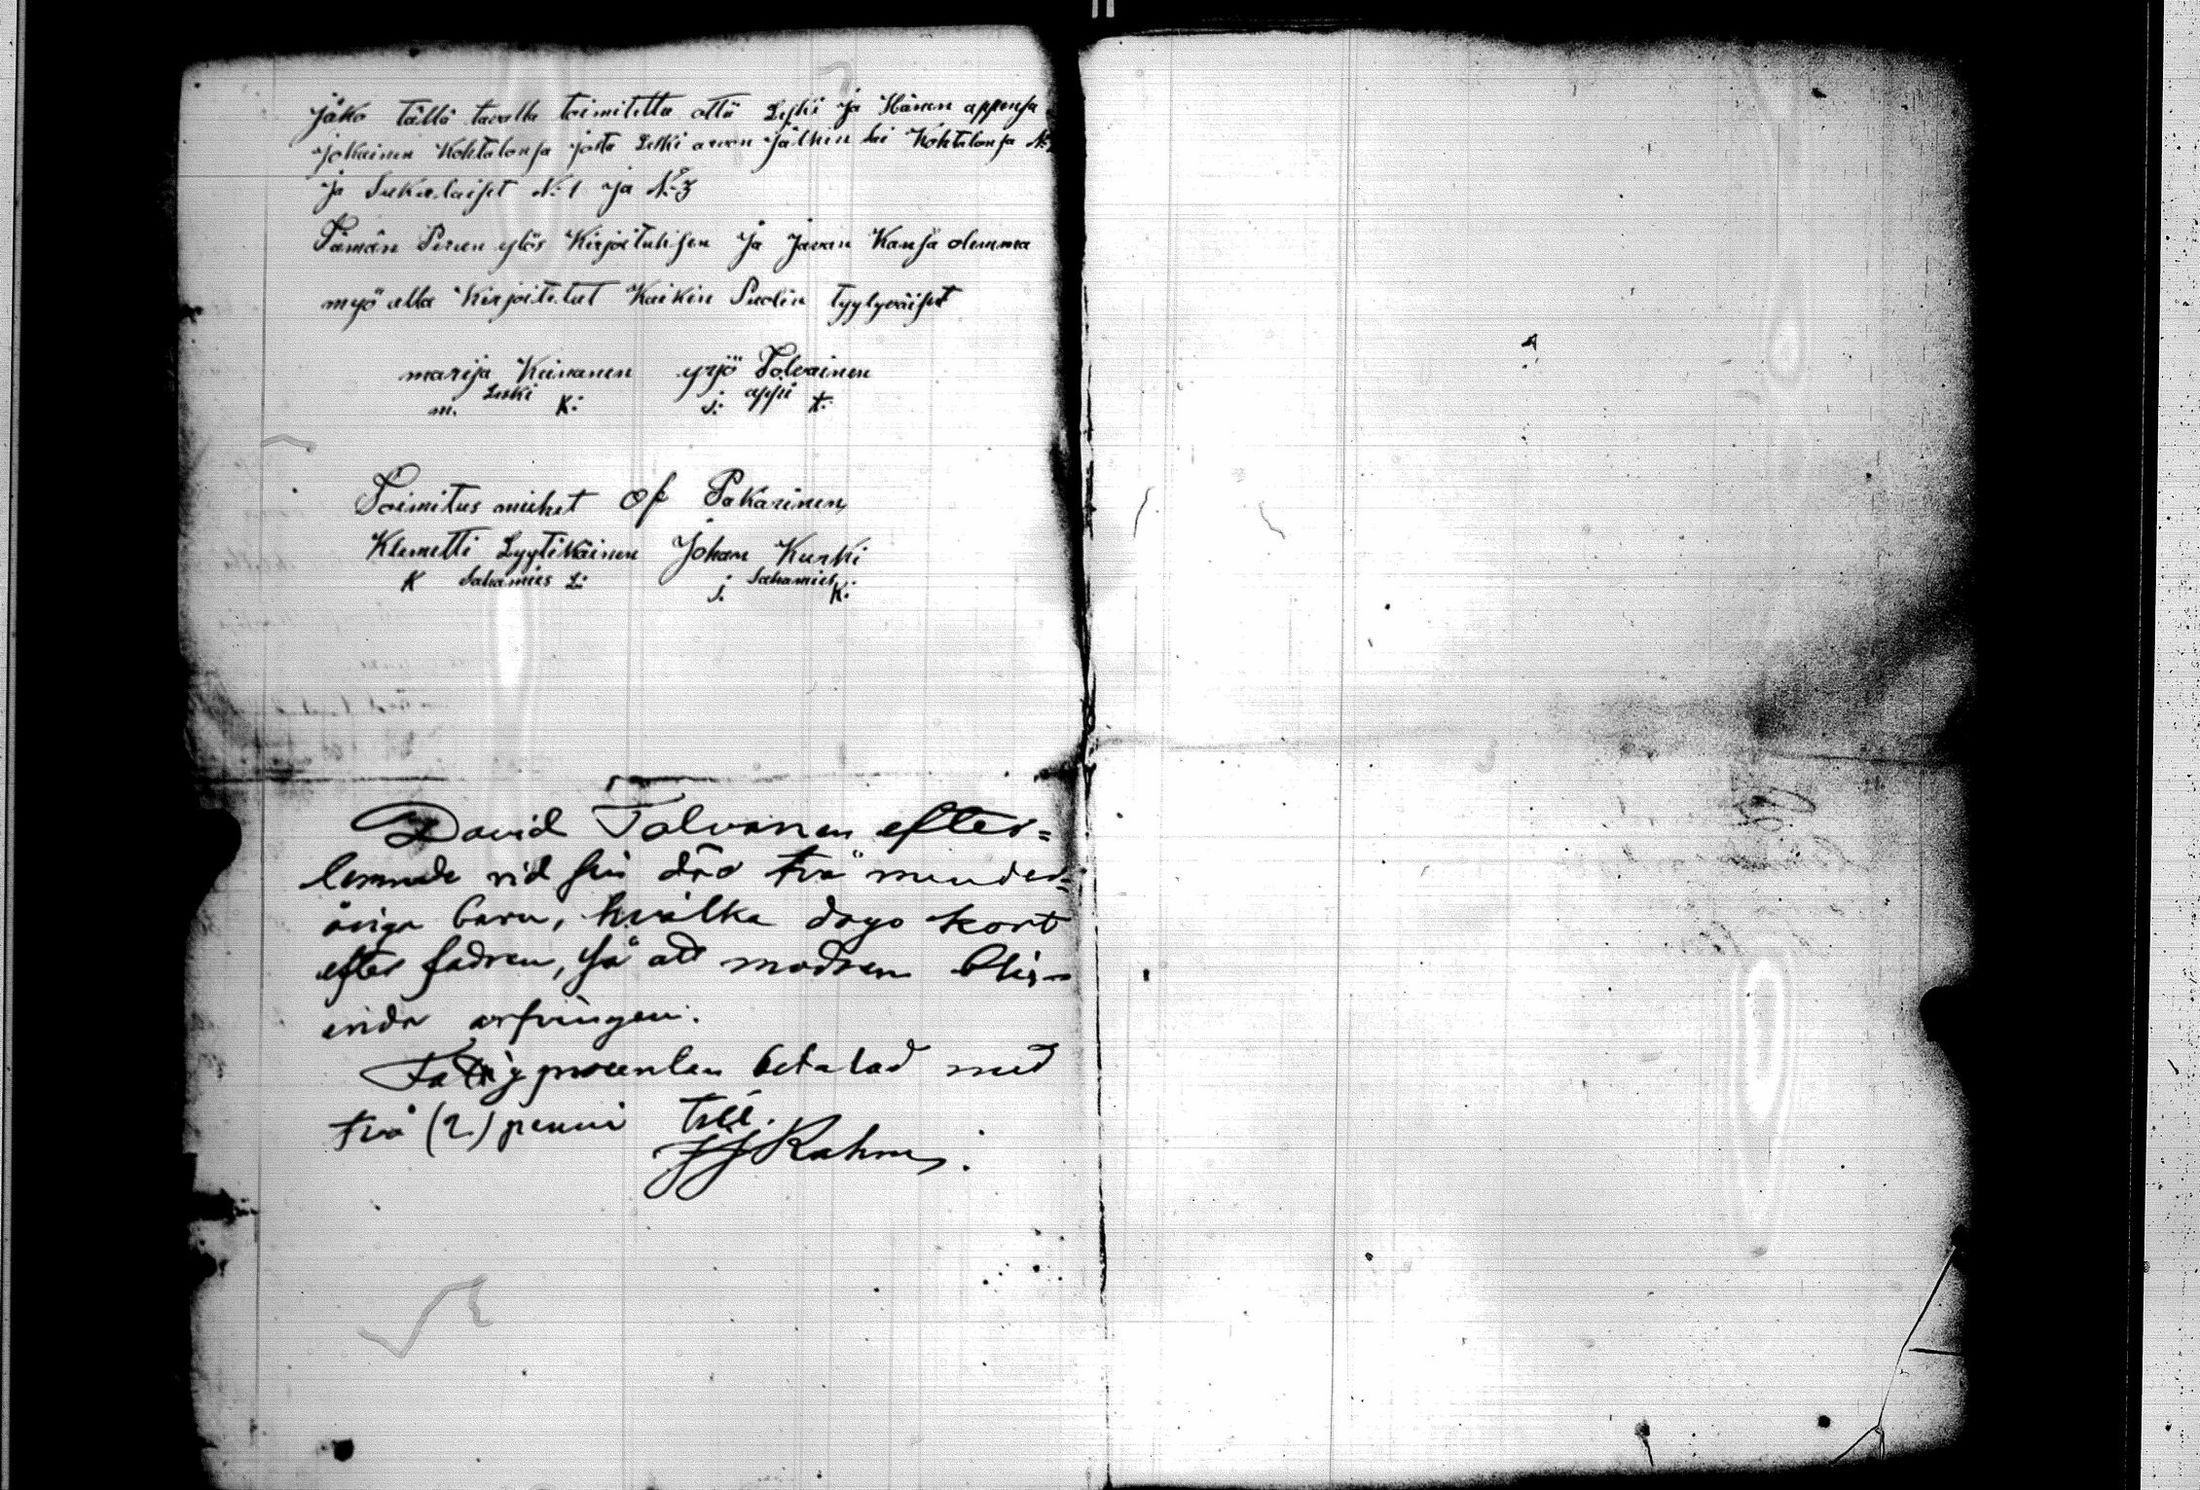 Jako tällä tavalla toimitettu että Leski ja Hänen appensa
jokainen Kohtalonsa josta Leski arvon jälkin sai Kohtalonsa No
ja Sukulaiset No 1 ja No 3
Tämän Perun ylös Kirjoituksen ja javon Kansa olemma
myö alla Kirjoitetut Kaikin Puolin tyytyväiset
marija Kinnanen yrjö Tolvainen
Leski appi
m. K: j: t:
Toimitus miehet Of Pakarinen
Klemetti Lyytikäinen Johan Kurki
K Lukumies L: j. Lukumies K:
David Tolvanen efter=
lemnade vid sin död två minder=
åriga barn, hvilka dogo kort
efter fadren, så att modren blir
enda arfvingen.
Fattigprocenten betalad med
två (2) penni till.
JJ Rahm